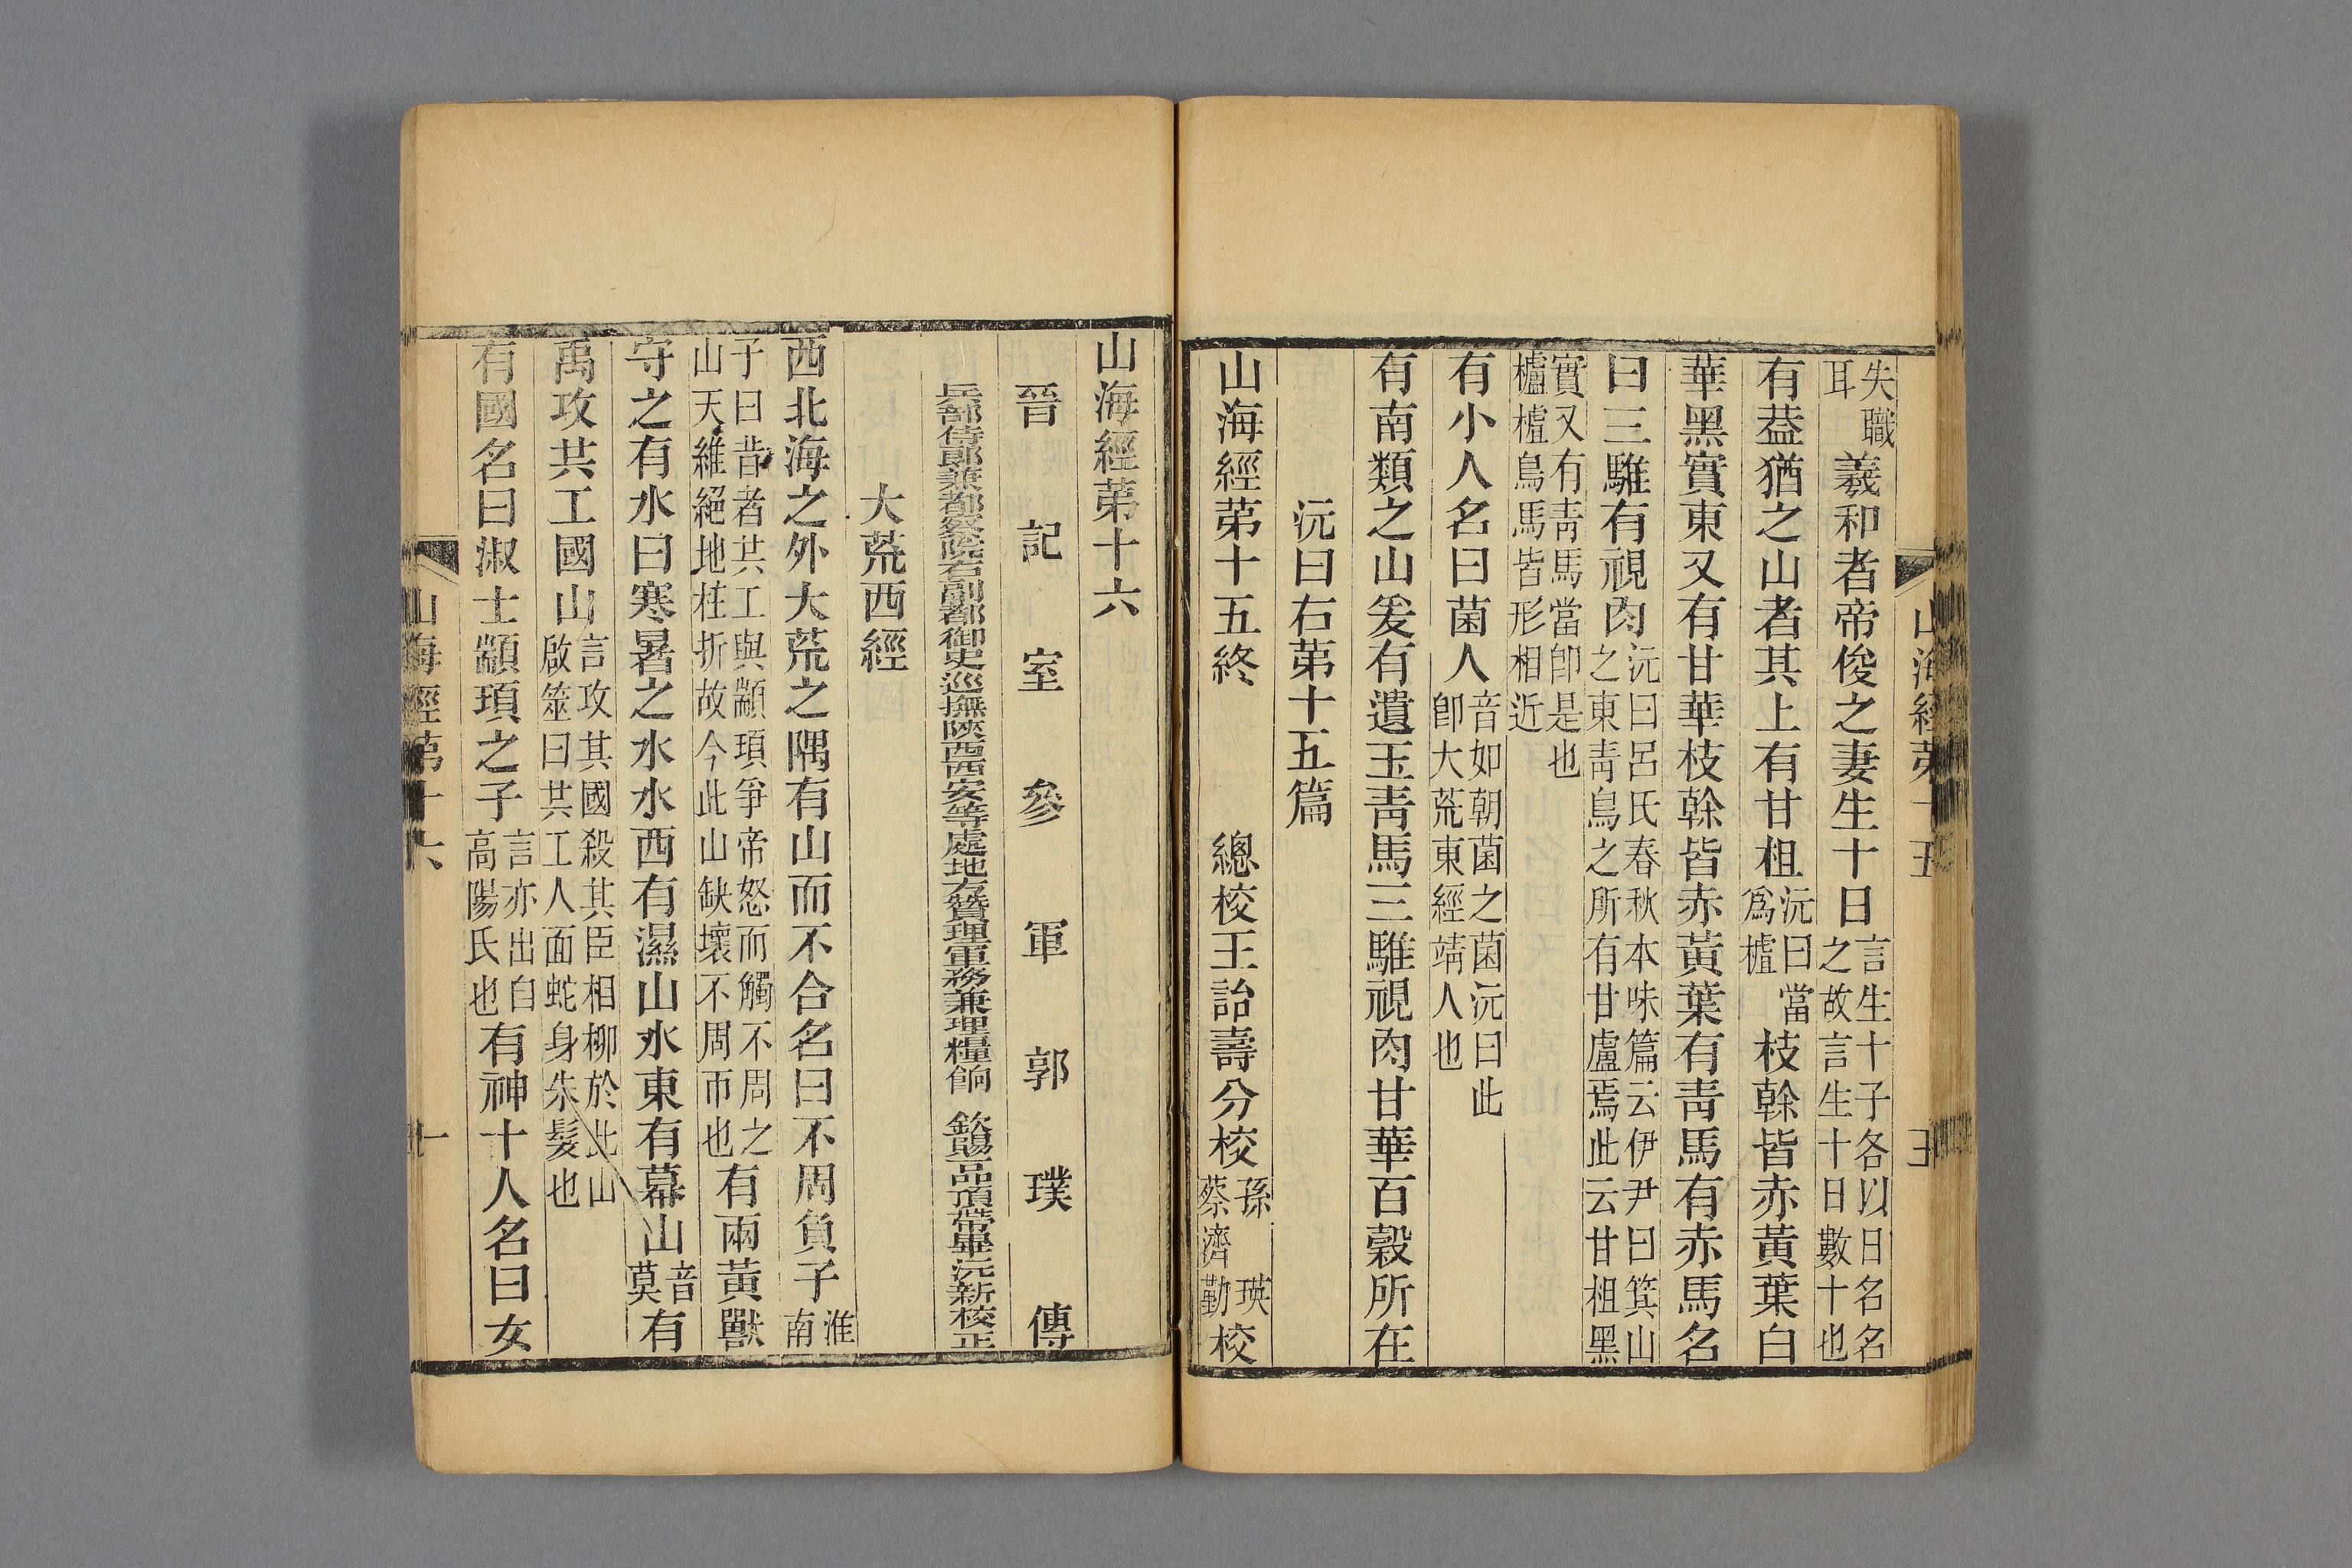 山海經第十五
失職
耳
羲和者帝俊之妻生十日
言生十子各以日名名
之故言生十日數十也
有葢猶之山者其上有甘柤
沅曰當
爲櫨
枝榦皆赤黃葉白
華黑實東又有甘華枝榦皆赤黃葉有靑馬有赤馬名
曰三騅有視肉
沅曰呂氏春秋本味篇云伊尹曰箕山
之東靑鳥之所有甘盧焉此云甘柤黑
實又有靑馬當卽是也
櫨樝鳥馬皆形相近
有小人名曰菌人
音如朝菌之菌沅曰此
卽大荒東經靖人也
有南類之山爰有遺玉靑馬三騅視肉甘華百穀所在
沅曰右第十五篇
山海經第十五終
總校王詒壽分校
孫瑛
蔡濟勤
校
山海經第十六
晉記室參軍郭璞傳
兵部侍郎兼都察院右副都御史巡撫陝西西安等處地方贊理軍務兼理糧餉 欽賜一品頂帶畢沅新校正
大荒西經
西北海之外大荒之隅有山而不合名曰不周負子
淮
南
子曰昔者共工與顓頊爭帝怒而觸不周之
山天維絕地柱折故今此山缺壞不周帀也
有兩黃獸
守之有水曰寒暑之水水西有濕山水東有幕山
音
莫
有
禹攻共工國山
言攻其國殺其臣相柳於此山
啟筮曰共工人面蛇身朱髮也
有國名曰淑士顓頊之子
言亦出自
高陽氏也
有神十人名曰女
山海經第十六
一